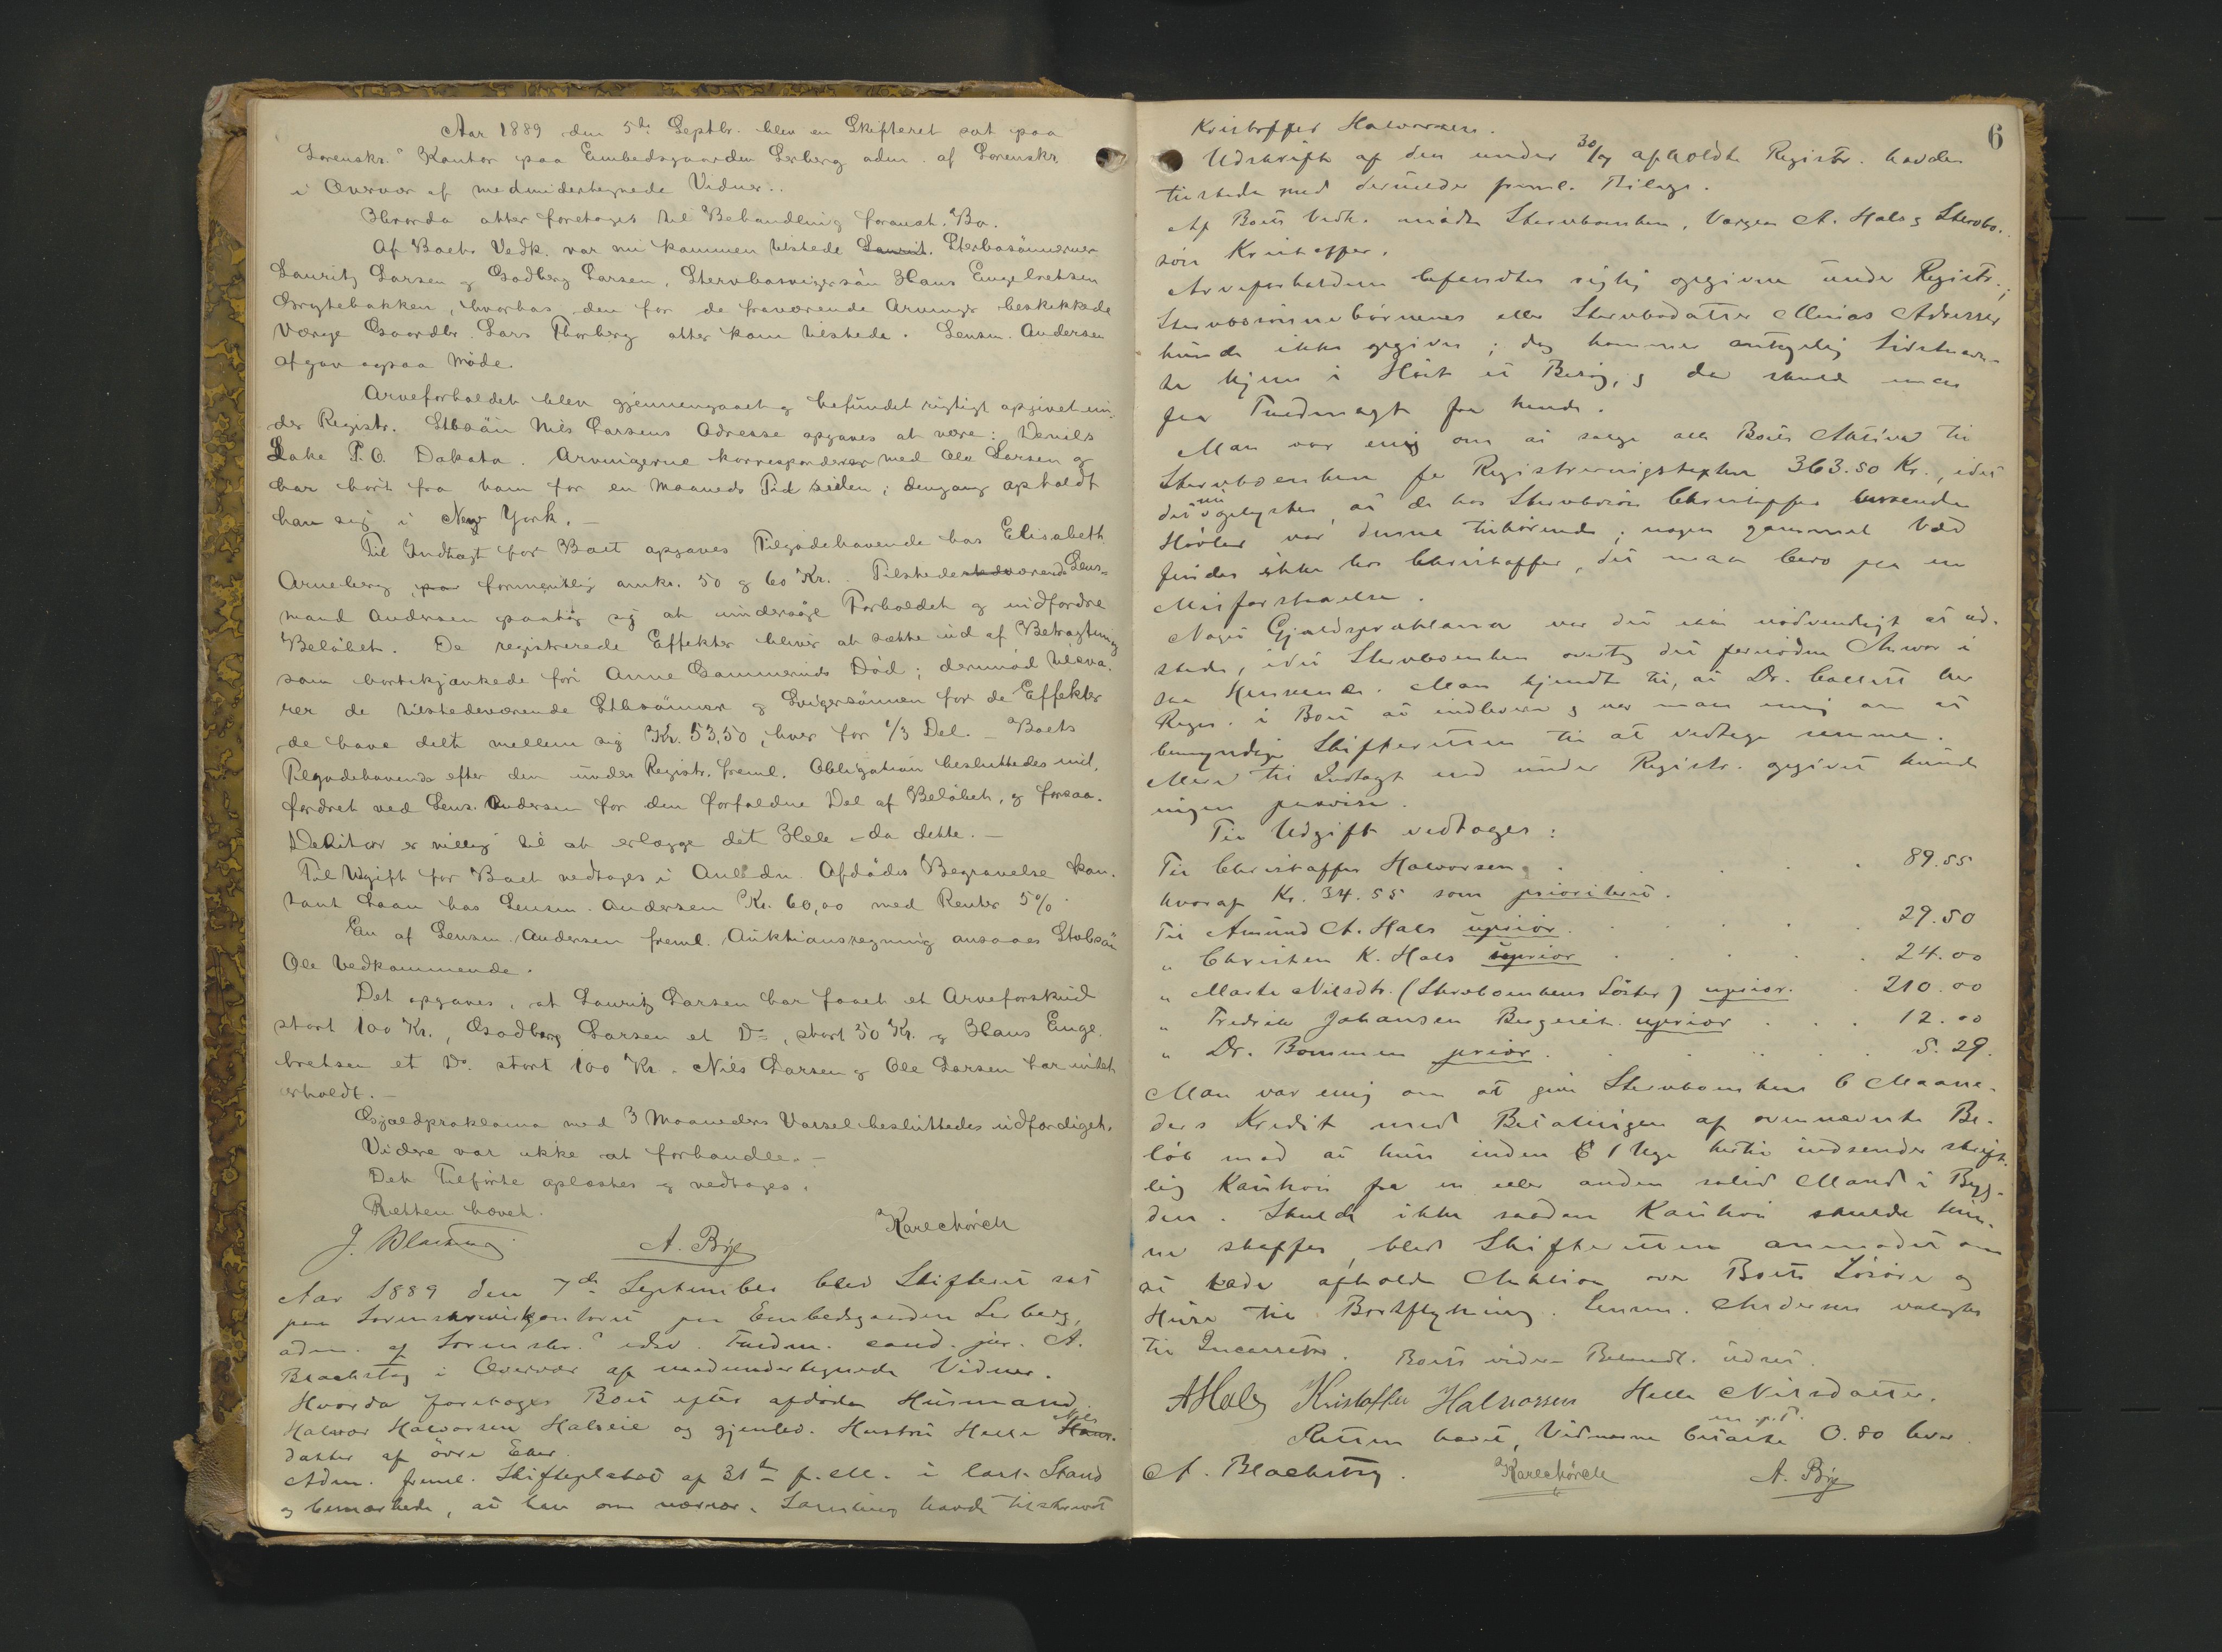 Aar 1889 den 5te Septbr. blev en Skifteret sat paa
Sorenskr.s Kontor paa Embedsgaarden Lerberg adm. af Sorenskr.
i Overvær af medundertegnede Vidner..
Hvorda atter foretoges til Behandling foranst. Bo.
Af Boets Vedk. var nu kommen tilstede Laurit. Sterbosönnerne
Lauritz Larsen og Godberg Larsen, Stervbosvigersön Hans Engebretsen
Grytebakken, hvorhos den for de fraværende Arvinger beskikkede
Værge Gaardbr. Lars Thorberg atter kom tilstede. Lensm. Andersen
afgav ogsaa Møde.
Arveforholdet blev gjennemgaaet og befundet rigtigt opgivet un-
der Registr. Stbsön Nils Larsens Adresse opgaves at være: Devils
Lake P.O. Dakota. Arvingerne korresponderer med Ole Larsen og
har hört fra ham for en Maaneds Tid siden; dengang opholdt
han sig i New York. —
Til Indtægt for Boet opgaves Tilgodehavende hos Elisabeth
Arneberg, paa formentlig omkr. 50 og 60 Kr. Tilstedeværende Lens-
mand Andersen paatog sig at undersöge Forholdet og indfordre
Belöbet. De registrerede Effekter bliver at sætte ud af Betragtning
som bortskjænkede för Anne Gommeruds Död; derimod tilsva-
rer de tilstedeværende Stbsönner og Svigersönnen for de Effekter
de have delt mellem sig Kr. 53,50, hver for 1/3 Del. — Boets
Tilgodehavende efter den under Registr. freml. Obligation besluttedes ind-
fordret ved Lens. Andersen for den forfaldne Del af Belöbet, og forsaa-
Debitor er villig til at erlægge det Hele — da dette. —
Til Udgift for Boet vedtoges i Anledn. Afdödes Begravelse kon-
tant Laan hos Lensm. Andersen Kr. 60,00 med Renter 5%.
En af Lensm. Andersen freml. Auktionsregning ansaaes Stvbsön
Ole Vedkommende.
Det opgaves, at Lauritz Larsen har faaet et Arveforskud
stort 100 Kr., Godberg Larsen et Do, stort 50 Kr. og Hans Enge-
bretsen et Do. stort 100 Kr. Nils Larsen og Ole Larsen har intet
erholdt. —
Gjældsproklama med 3 Maaneders Varsel besluttedes udfærdiget.
Videre var ikke at forhandle. —
Det Tilförte oplæstes og vedtoges.
Retten hævet.
J. A. Bye Karechörch
Aar 1889 den 7de September blev Skifteret sat
paa Sorenskriverkontoret paa Embedsgaarden Lerberg,
adm. af Sorenskr.s edsv. Fuldm. cand. jur. A.
Blackstag i Overvær af medundertegnede Vidner.
Hvorda foretoges Boet efter afdöde Husmand
Halvor Halvorsen Halseie og gjenlev. Hustru Helle Nils
datter af övre Eker.
Adm. freml. Skifteplakat af 31te f. M. i læst Stand
og bemærkede, at han om nærvær. Samling havde tilskrevet
6
Kristoffer Halvorsen.
Udskrift af den under 30/7 afholdte Registr. havdes
tilstede med derunder freml. Bilage.
Af Boets Vedk. mödte Stervboenken, Værgen A. Hals og Stervbo-
sön Kristoffer.
Arveforholdene befandtes rigtig opgivne under Registr.;
Stervbosönnebörnenes eller Stervbodatter Minas Adresser
kunde ikke opgives; dog kommer antagelig Sidstnævn-
te hjem i Höst et Besög, og da skulde man
faa Fuldmagt fra hende.
Man var enig om at sælge alle Boets Aktiver til
Stervboenken for Registreringstaxten 363.50 Kr., idet
det nu oplystes, at de hos Stervbosön Christoffer
Hövler var denne tilhörende; nogen gammel Ved
findes ikke hos Christoffer, det maa bero paa en
Misforstaaelse.
Noget Gjældsproklama var det ikke nödvendigt at ud-
stede, idet Stervboenken overtog det fornödne Ansvar i
saa Henseende. Man kjendte til, at Dr. Collett har
Regn. i Boet at indlevere og var man enig om at
bemyndige Skifteretten til at vedtage samme.
Mere til Indtægt end under Registr. opgivet kunde
ingen paavise.
Til Udgift vedtoges:
Til Christoffer Halvorsen . . . . 89.55
hvoraf Kr. 34.55 som prioriteret.
Til Amund A. Hals uprior. . . . . 29.50
" Christen K. Hals uprior . . . . 24.00
" Marte Nilsdtr. (Stervboenkens Söster) uprior. . 210.00
" Fredrik Johansen Bergerei. uprior . . . 12.00
" Dr. Bommen prior. . . . . 5.29.
Man var enig om at give Stervboenken 6 Maane-
ders Kredit med Betalingen af ovennævnte Be-
löb mod at hun inden 1 Uge hertil indsender skrift-
lig Kaution fra en eller anden solid Mand i Byg-
den. Skulde ikke saadan Kaution skulde kun-
ne skaffes, blev Skifteretten anmodet om
at lade afholde Auktion over Boets Lösöre og
Huse til Bortflytning. Lensm. Andersen valgtes
til Incassator. Boets videre Behandl. udsat.
AHals Kristoffer Halvorsen Helle Nilsdatter.
m. p. P.
Retten hævet, Vidnerne betalte 0.80 hver.
A. Blackstag. Karechörch A. Bye